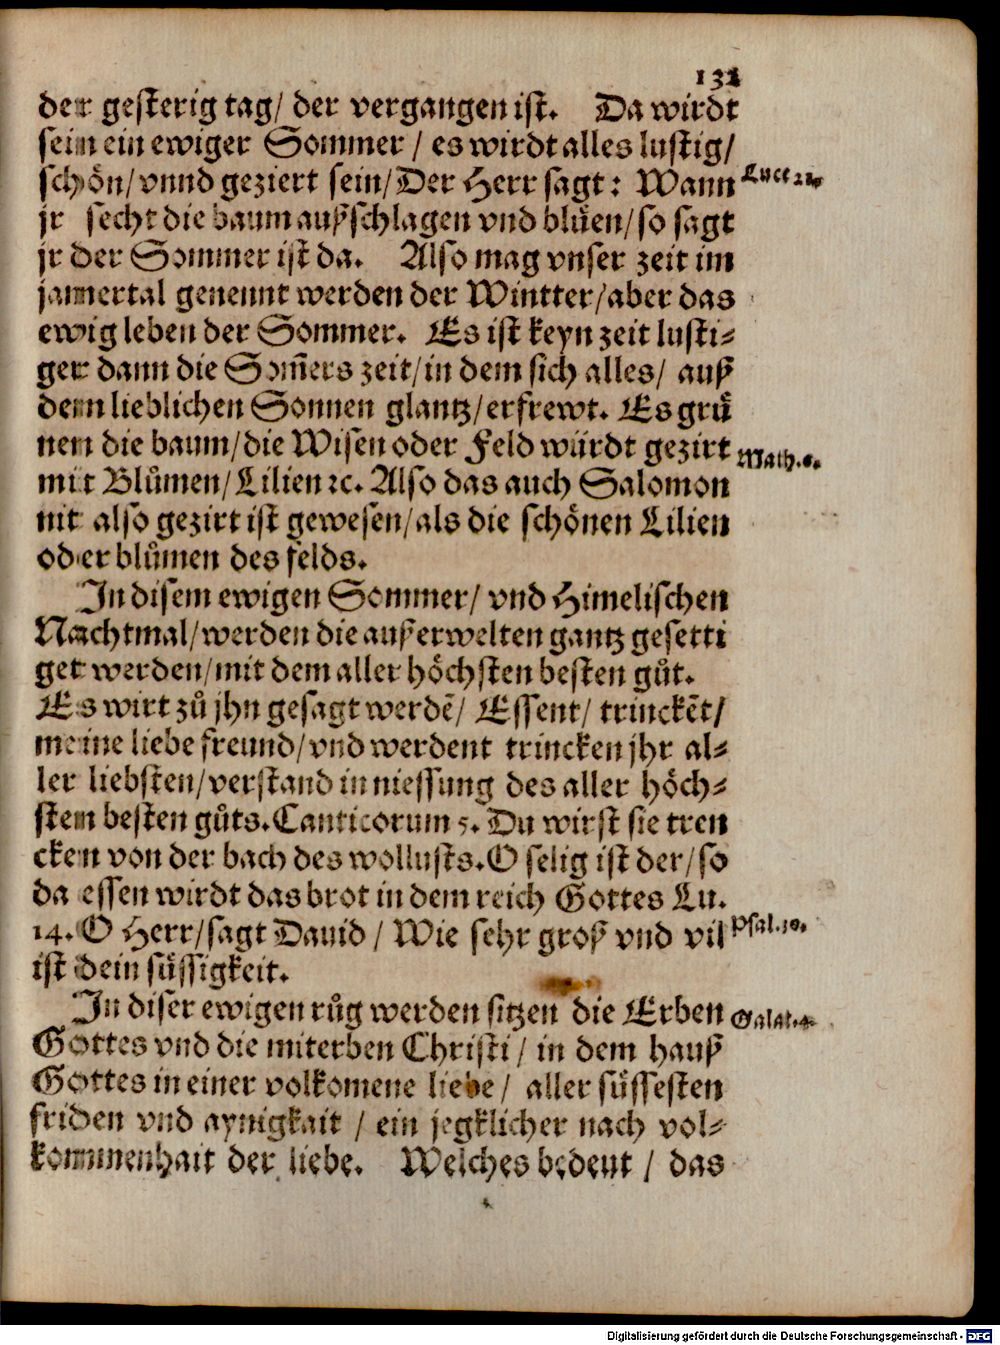 132
der gesterig tag/ der vergangen ist. Da wirdt
sein ein ewiger Sommer / es wirdt alles lustig/
schön/ vnnd geziert sein/ Der Herr sagt: Wann
Luce 21.
jr secht die baum außschlagen vnd blůen/ so sagt
jr der Sommer ist da. Also mag vnser zeit im
jamertal genennt werden der Wintter/ aber das
ewig leben der Sommer. Es ist keyn zeit lusti-
ger dann die Som̃ers zeit/ in dem sich alles/ auß
dem lieblichen Sonnen glantz/ erfrewt. Es grů
nen die baum/ die Wisen oder Feld würdt gezirt
Math. 6.
mit Blůmen/ Lilien ꝛc. Also das auch Salomon
nit also gezirt ist gewesen/ als die schönen Lilien
oder blůmen des felds.
In disem ewigen Sommer/ vnd Himelischen
Nachtmal/ werden die außerwelten gantz gesetti
get werden/ mit dem aller höchsten besten gůt.
Es wirt zů jhn gesagt werdẽ/ Essent/ trinckẽt/
meine liebe freund/ vnd werdent trincken jhr al-
ler liebsten/ verstand in niessung des aller höch-
sten besten gůts. Canticorum 5. Du wirst sie tren
cken von der bach des wollusts. O selig ist der/ so
da essen wirdt das brot in dem reich Gottes Lu.
14. O Herr/ sagt Dauid / Wie sehr groß vnd vil
Psal. 30.
ist dein süssigkeit.
In diser ewigen růg werden sitzen die Erben
Galat. 4.
Gottes vnd die miterben Christi / in dem hauß
Gottes in einer volkomene liebe / aller süssesten
friden vnd aynigkait / ein jegklicher nach vol-
kommenhait der liebe. Welches bedeut / das
Digitalisierung gefördert durch die Deutsche Forschungsgemeinschaft - DFG